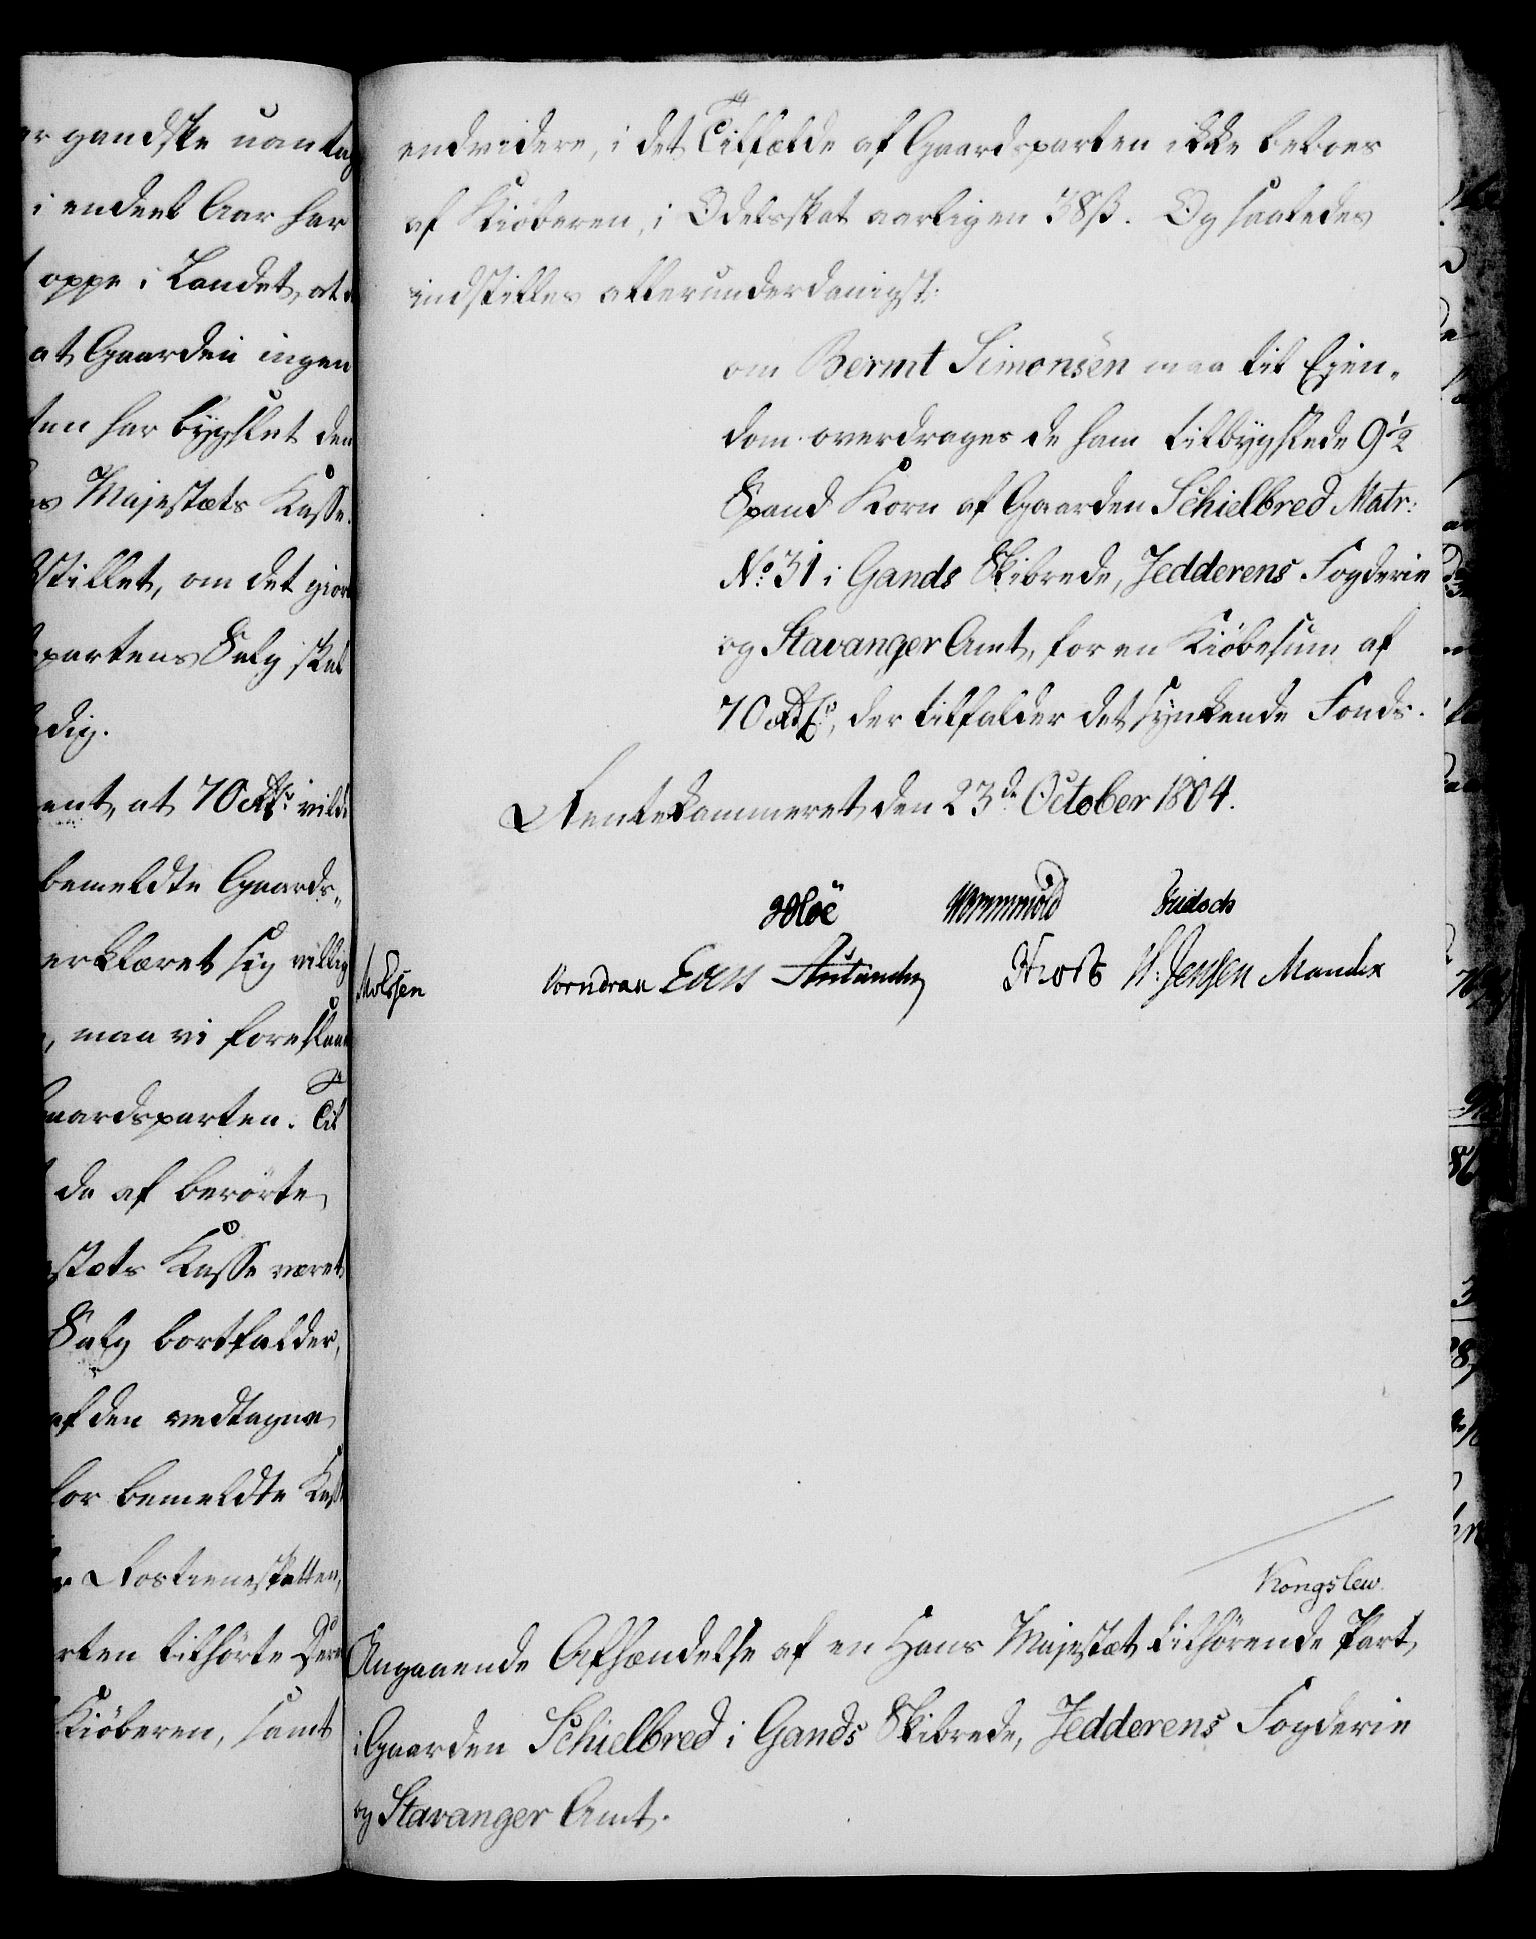 er gandske uantag
i endeel Aar har
oppe i Landet, at
at Gaarden ingen
ten har bygslet den
es Majestæts Kasse.
stillet, om det giør
partens Salg skal
dig.
ent, at 70 Rd vilde
bemeldte Gaards-
erklæret sig villig
, maa vi foreslaae
aardsparten. Til
de af berørte
stæts Kasse været
Salg bortfalder,
af den vedtagne
for bemeldte Kas
Rostieneskatten,
rten tilhørte Der
Kiøberen, samt
endvidere, i det Tilfælde af Gaardsparten ikke beboes
af Kiøberen, i Odelsskat aarligen 38 ß. Og saaledes
indstilles allerunderdanigst:
om Bernt Simonsen maa til Ejen-
dom overdrages de ham tilbygslede 9 1/2
Spand Korn af Gaarden Schielbred Matr:
No. 31 i Gands Skibrede, Jedderens Fogderie
og Stavanger Amt, for en Kiøbesum af
70 Rd, der tilfalder det synkende Fonds.
Rentekammeret den 23de October 1804.
Hoë Wormskiold Fridsch
Molssen Vorndran Lars Hvoss W. Jensen Mandix
Kongslew.
Angaaende Afhændelse af en Hans Majestæt tilhørende Part
i Gaarden Schielbred i Gands Skibrede, Jedderens Fogderie
og Stavanger Amt.